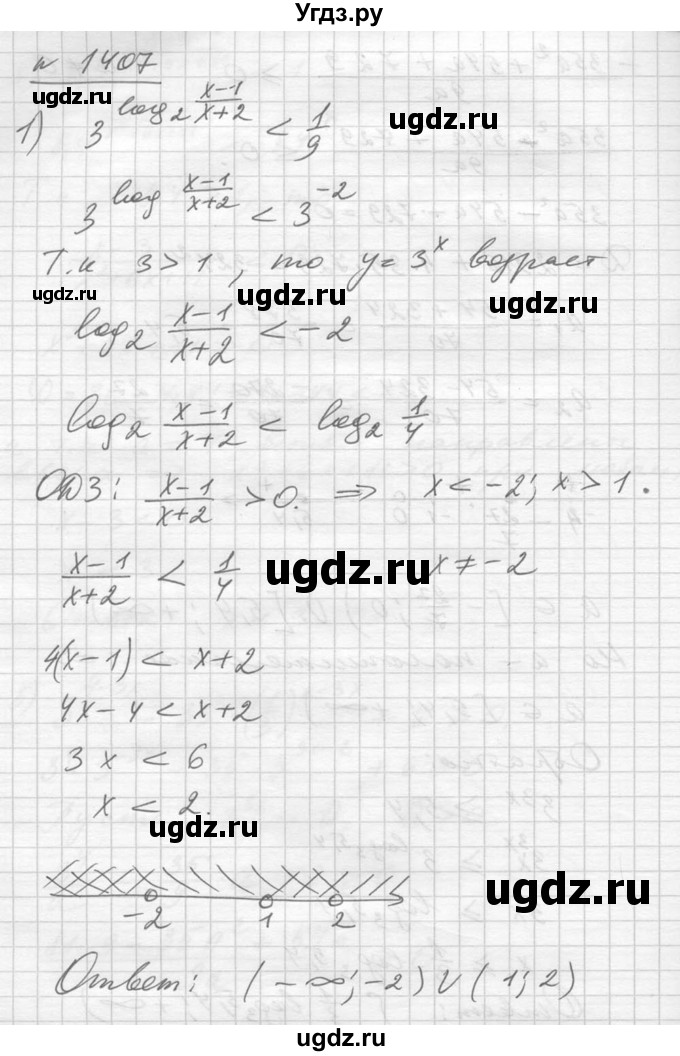 Угдз.ру
N 1407
ugdz.ru
1) 3^{log₂ (x-1)/(x+2)} < 1/9
ugdz.ru
3^{log (x-1)/(x+2)} < 3^{-2}
Т.к 3 > 1, то y = 3^x возраст
ugdz.ru ugdz.ru ugdz.ru
log₂ (x-1)/(x+2) < -2
log₂ (x-1)/(x+2) < log₂ 1/4
ОДЗ: (x-1)/(x+2) > 0. ⇒ x < -2; x > 1.
(x-1)/(x+2) < 1/4 x ≠ -2
ugdz.ru
4(x-1) < x+2
4x-4 < x+2
3x < 6
x < 2.
ugdz.ru
ugdz.ru
-2 1 2
Ответ: (-∞; -2) ∪ (1; 2)
ugdz.ru